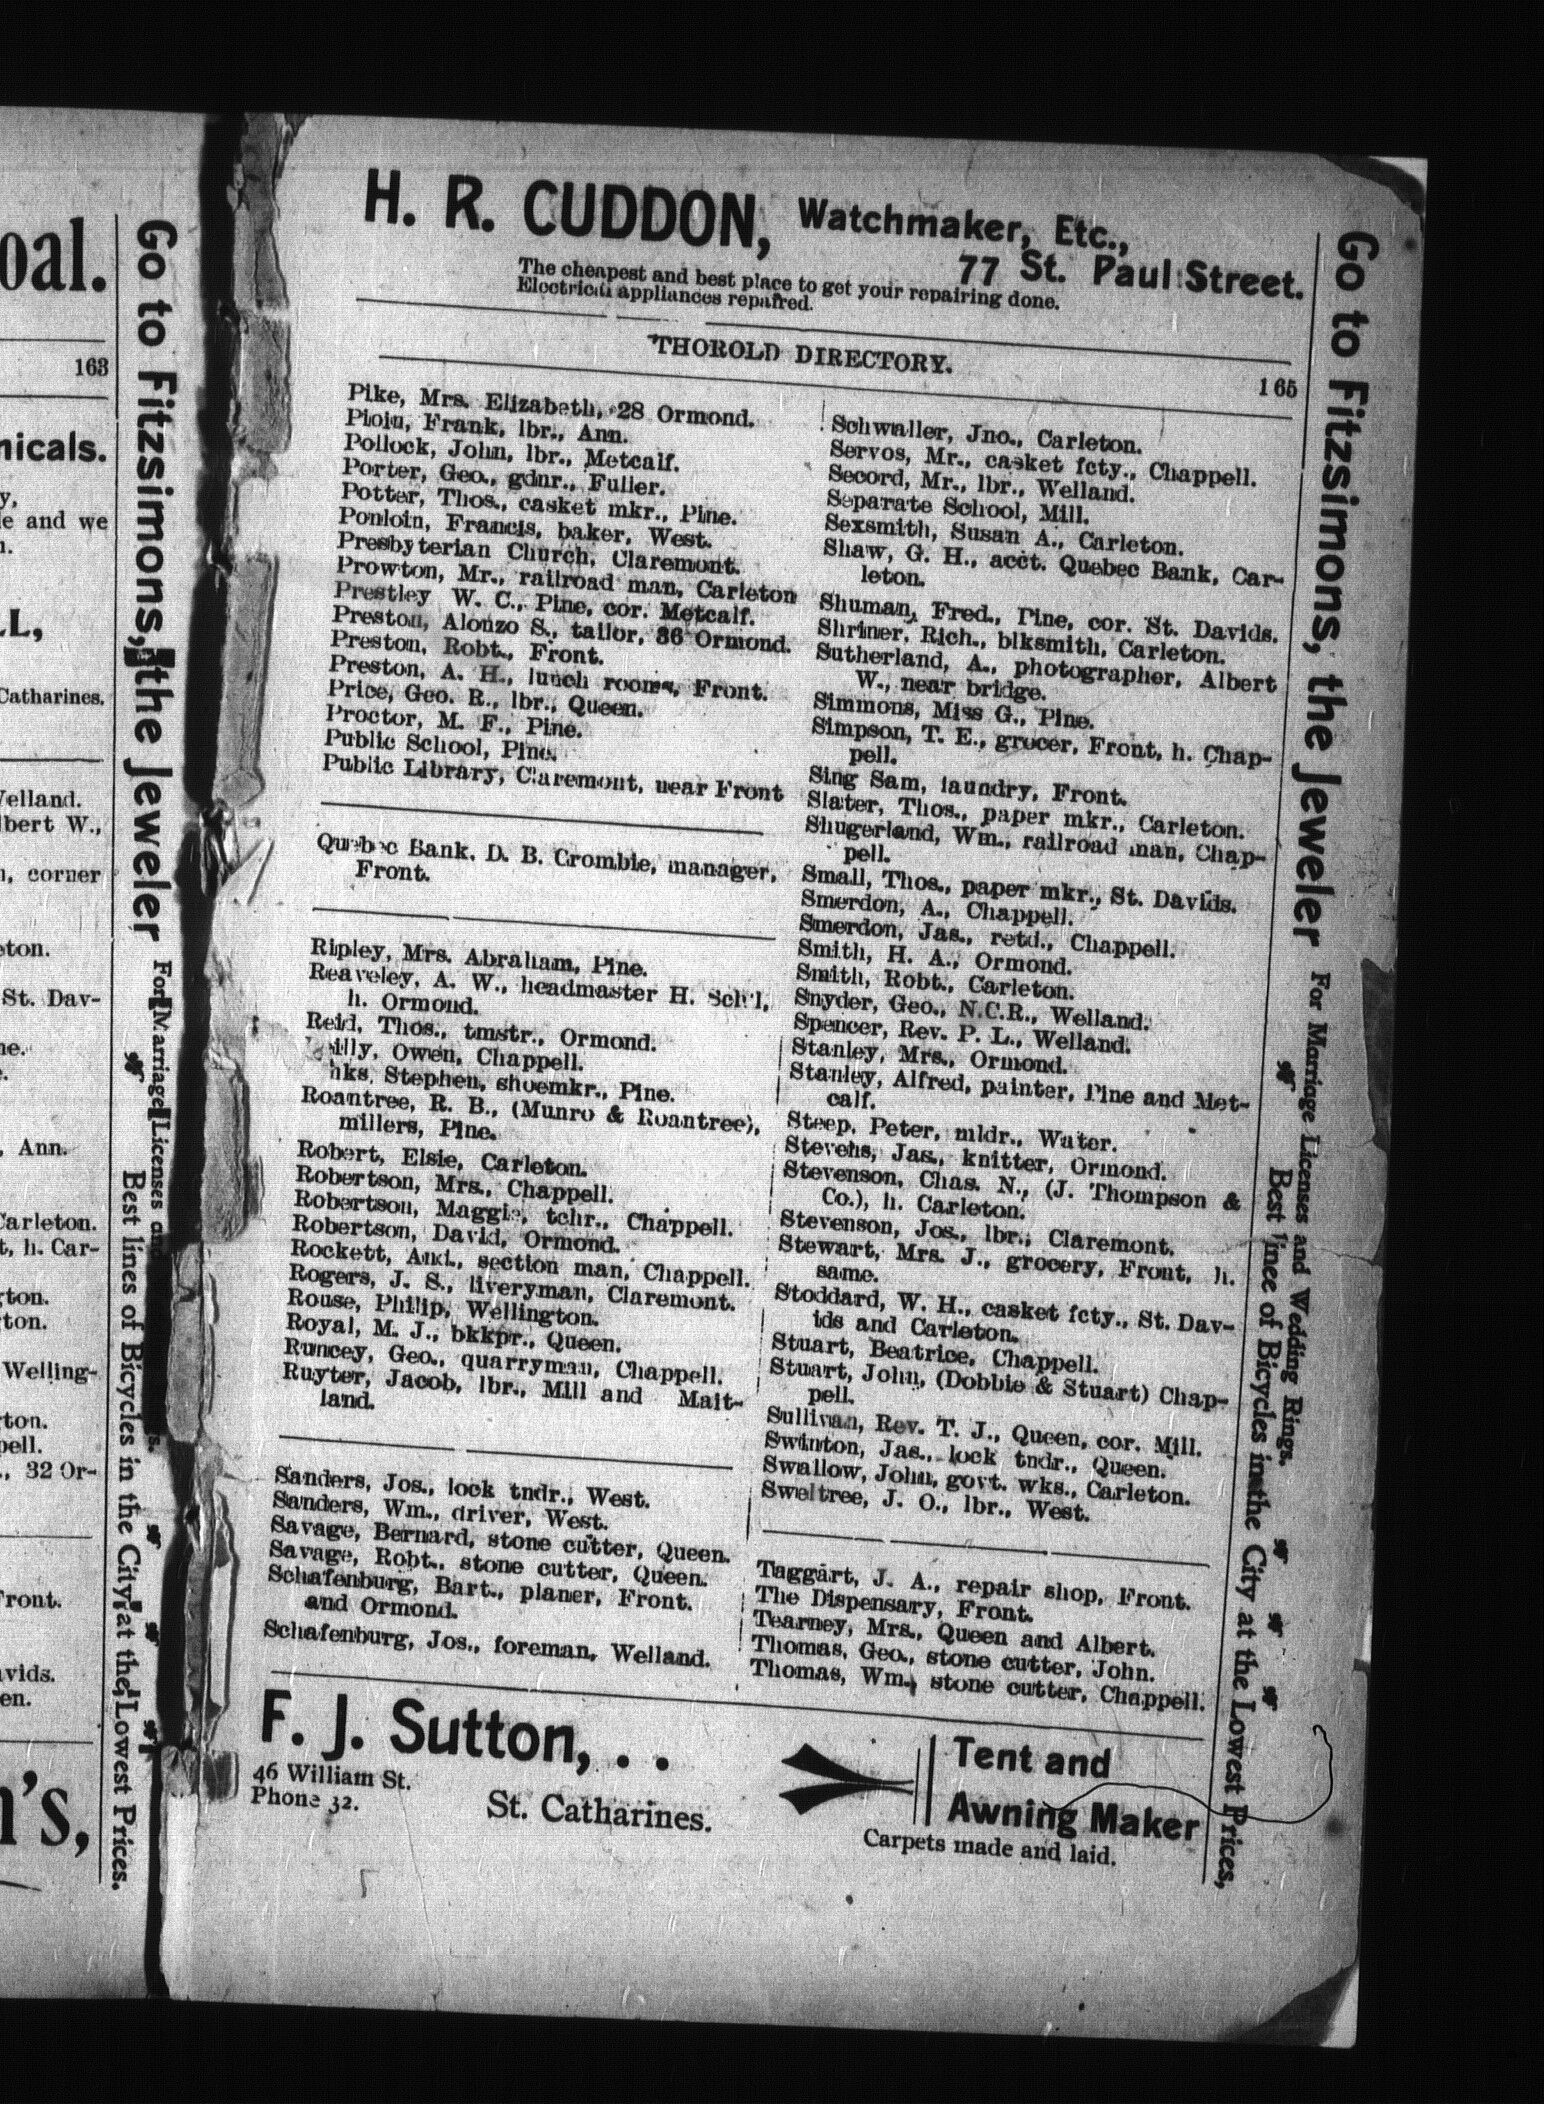 oal.
163
nicals.
y,
le and we
n.
LL,
Catharines.
Velland.
lbert W.,
n, corner
eton.
St. Dav-
ne.
e.
, Ann.
Carleton.
t, h. Car-
gton.
gton.
Welling-
gton.
pell.
., 32 Or-
Front.
avids.
en.
n's,
Go to Fitzsimons, the Jeweler
For Marriage Licenses and
Best lines of Bicycles in the City at the Lowest Prices.
H. R. CUDDON, Watchmaker, Etc.,
77 St. Paul Street.
The cheapest and best place to get your repairing done.
Electrical appliances repaired.
THOROLD DIRECTORY.
165
Pike, Mrs. Elizabeth, 28 Ormond.
Pioin, Frank, lbr., Ann.
Pollock, John, lbr., Metcalf.
Porter, Geo., gdnr., Fuller.
Potter, Thos., casket mkr., Pine.
Ponloin, Francis, baker, West.
Presbyterian Church, Claremont.
Prowton, Mr., railroad man, Carleton
Prestley W. C., Pine, cor. Metcalf.
Preston, Alonzo S., tailor, 36 Ormond.
Preston, Robt., Front.
Preston, A. H., lunch rooms, Front.
Price, Geo. R., lbr., Queen.
Proctor, M. F., Pine.
Public School, Pine.
Public Library, Claremont, near Front
Quebec Bank, D. B. Crombie, manager,
Front.
Ripley, Mrs. Abraham, Pine.
Reaveley, A. W., headmaster H. Sch'l,
h. Ormond.
Reid, Thos., tmstr., Ormond.
illy, Owen, Chappell.
nks, Stephen, shoemkr., Pine.
Roantree, R. B., (Munro & Roantree),
millers, Pine.
Robert, Elsie, Carleton.
Robertson, Mrs., Chappell.
Robertson, Maggie, tchr., Chappell.
Robertson, David, Ormond.
Rockett, And., section man, Chappell.
Rogers, J. S., liveryman, Claremont.
Rouse, Philip, Wellington.
Royal, M. J., bkkpr., Queen.
Runcey, Geo., quarryman, Chappell.
Ruyter, Jacob, lbr., Mill and Mait-
land.
Sanders, Jos., lock tndr., West.
Sanders, Wm., driver, West.
Savage, Bernard, stone cutter, Queen.
Savage, Robt., stone cutter, Queen.
Schafenburg, Bart., planer, Front.
and Ormond.
Schafenburg, Jos., foreman, Welland.
Schwaller, Jno., Carleton.
Servos, Mr., casket fcty., Chappell.
Secord, Mr., lbr., Welland.
Separate School, Mill.
Sexsmith, Susan A., Carleton.
Shaw, G. H., acct. Quebec Bank, Car-
leton.
Shuman, Fred., Pine, cor. St. Davids.
Shriner, Rich., blksmith, Carleton.
Sutherland, A., photographer, Albert
W., near bridge.
Simmons, Miss G., Pine.
Simpson, T. E., grocer, Front, h. Chap-
pell.
Sing Sam, laundry, Front.
Slater, Thos., paper mkr., Carleton.
Shugerland, Wm., railroad man, Chap-
pell.
Small, Thos., paper mkr., St. Davids.
Smerdon, A., Chappell.
Smerdon, Jas., retd., Chappell.
Smith, H. A., Ormond.
Smith, Robt., Carleton.
Snyder, Geo., N.C.R., Welland.
Spencer, Rev. P. L., Welland.
Stanley, Mrs., Ormond.
Stanley, Alfred, painter, Pine and Met-
calf.
Steep, Peter, mldr., Water.
Stevens, Jas., knitter, Ormond.
Stevenson, Chas. N., (J. Thompson &
Co.), h. Carleton.
Stevenson, Jos., lbr., Claremont.
Stewart, Mrs. J., grocery, Front, h.
same.
Stoddard, W. H., casket fcty., St. Dav-
ids and Carleton.
Stuart, Beatrice, Chappell.
Stuart, John, (Dobbie & Stuart) Chap-
pell.
Sullivan, Rev. T. J., Queen, cor. Mill.
Swinton, Jas., lock tndr., Queen.
Swallow, John, govt. wks., Carleton.
Sweltree, J. O., lbr., West.
Taggart, J. A., repair shop, Front.
The Dispensary, Front.
Tearney, Mrs., Queen and Albert.
Thomas, Geo., stone cutter, John.
Thomas, Wm., stone cutter, Chappell.
F. J. Sutton, . .
46 William St.
Phone 32.
St. Catharines.
Tent and
Awning Maker
Carpets made and laid.
Go to Fitzsimons, the Jeweler
For Marriage Licenses and Wedding Rings.
Best lines of Bicycles in the City at the Lowest Prices,